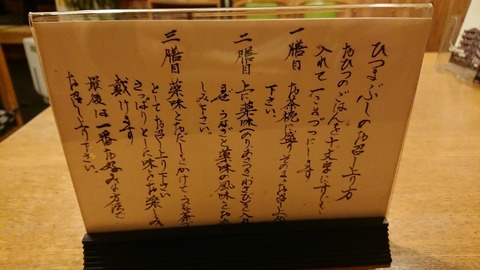 ひつまぶしのお召し上り方
おひつのごはんを十文字にすじを
入れて一ぜんづつにします
一膳目 お茶碗に盛りそのままお召し上り
下さい。
二膳目 上に薬味(のり、わさび、ねぎ)を入
まぜ、うなぎと薬味の風味をお楽
しみ下さい。
三膳目 薬味とおだしをかけてうな茶
としてお召し上り下さい
さっぱりとした味がお楽しみ
戴けます
最後は一番お好みな方法で
お召し上り下さい。